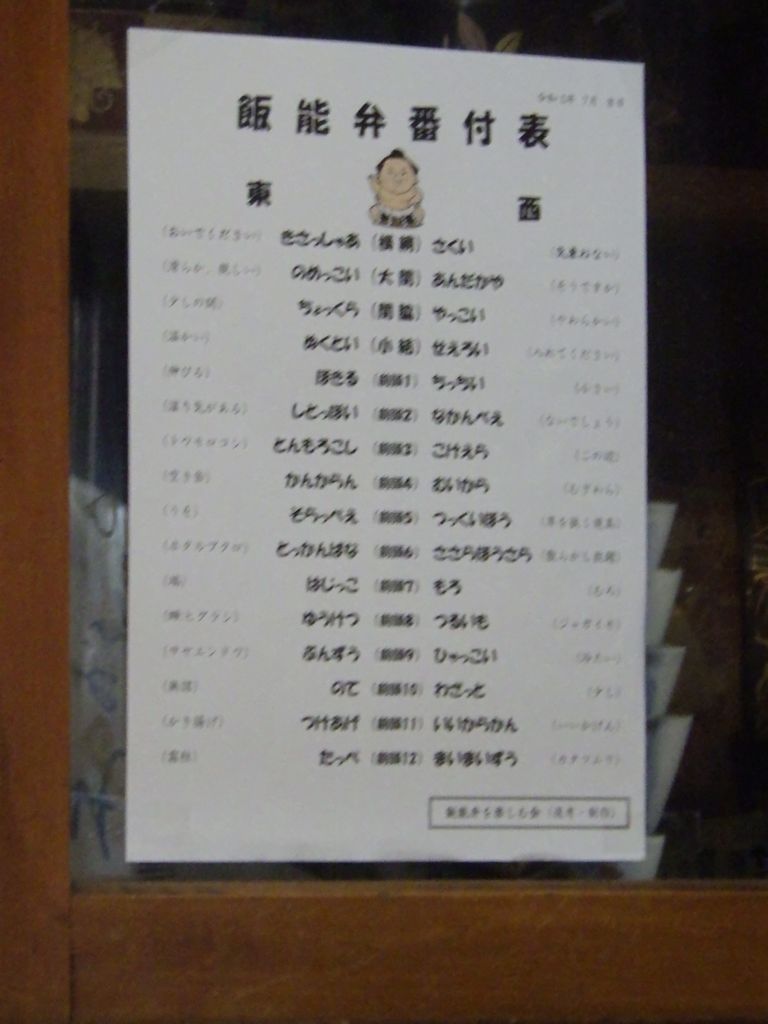 飯能弁番付表
東 西
(おいでください) きさっしゃあ (横綱) さくい (気兼ねない)
のめっこい (大関) あんだかや (そうですか)
ちょっくら (関脇) やっこい (やわらかい)
(温かい) ぬくとい (小結) せえろい
(伸びる) ほきる (前頭1) ちっちい (小さい)
(湿り気がある) しとっぽい (前頭2) なかんべえ (ないでしょう)
(トウモロコシ) とんもろこし (前頭3) こけえら (この辺)
(空き缶) かんからん (前頭4) むいから (むぎわら)
(うそ) そらっぺえ (前頭5) つっくいぼう
(ホタルブクロ) とっかんばな (前頭6) ささらほうさら
(端) はじっこ (前頭7) もろ (むろ)
ゆうけつ (前頭8) つるいも (ジャガイモ)
(サヤエンドウ) ぶんずう (前頭9) ひゃっこい (冷たい)
のて (前頭10) わざっと (少し)
(かき揚げ) つけあげ (前頭11) いいからかん (いいかげん)
(霜柱) たっぺ (前頭12) まいまいずう (カタツムリ)
飯能弁を楽しむ会